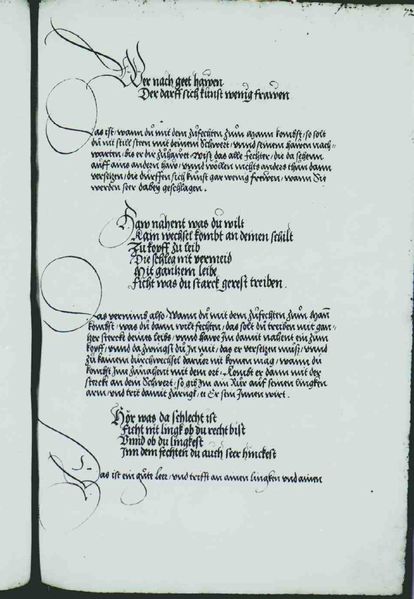 72
Wer nach geet hawen
Der darff sich kunst wenig frawen
Das ist / wann du mit dem zufechten zum Mann kombst / so solt
du nit still sten mit deinem Schwert / vnnd seinen hawen nach=
warten / bis er dir zuhawt / Wist das alle Fechter / die da sehenn
auff ains andern haw / vnnd wöllen nichts anders than dann
versetzen / die durffen sich kunst gar wenig frewen / wann Sie
werden seer dabey geschlagen .
Haw nahent was du wilt
Kain wechsel kombt an deinen schilt
Zu kopff zu leib
Die schleg nit vermeid
Mit gantzem leibe
Ficht was du starck gerest treiben .
Das vernimm also / Wann du mit dem zufechten zum Man
kombst / was du dann wilt fechten / das solt du treiben mit gan=
tzer sterck deines leibs / vnnd haw Im damit nahent ein zum
kopff / vnnd da zwingst du In mit / das er versetzen muss / vnnd
zu kainem durchwechsel dauor nit komen mag / wann du
kombst Im zunahent mit dem ort / Kombt er dann mit der
sterck an dein Schwert / so gib Im am Rür auf seinen lingken
arm / vnd trit damit zurugk / ee Er sein Innen wirt .
Hör was da schlecht ist
Ficht nit lingk ob du recht bist
Vnnd ob du lingkest
Inn dem fechten du auch seer hinckest
Das ist ein gute leer / vnd trifft an ainen lingken vnd ainen